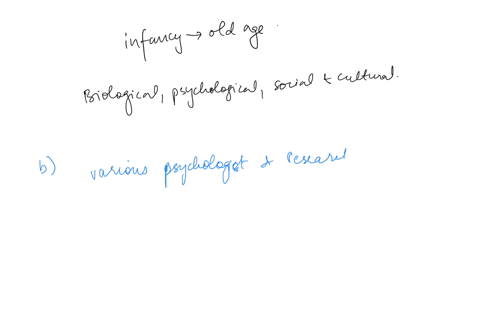 infancy → old age
Biological, psychological, social & cultural.
b) various psychologist & researh